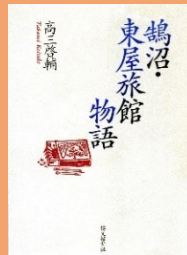 鵠沼・
東屋旅館
物語
高三啓輔
Takami Keisuke
博文館新社